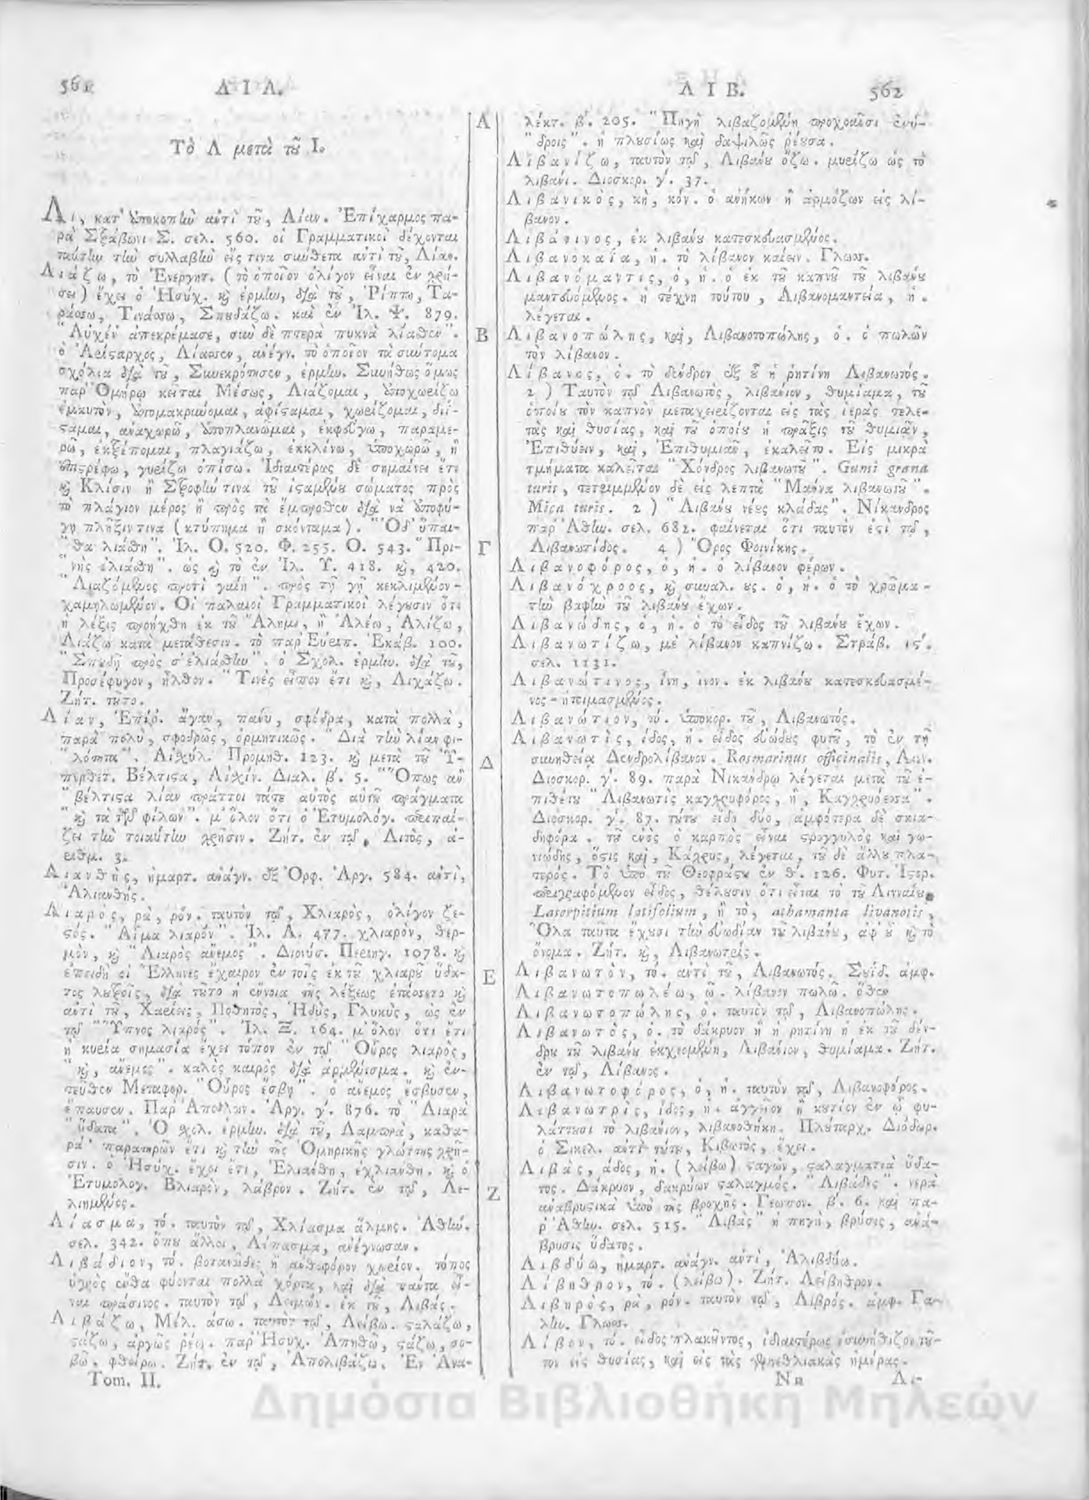 561 Λ Ι Λ.
Τὸ Λ μετὰ τοῦ Ι.
Λι, κατ' ἀποκοπὴν ἀντὶ τοῦ, Λίαν. Ἐπίχαρμος πα-
ρὰ Στράβωνι Σ. σελ. 560. οἱ Γραμματικοὶ δέχονται
ταύτην τὴν συλλαβὴν εἰς τινα σύνθετα ἀντὶ τοῦ, Λίαν.
Λιάζω, τὸ Ἐνεργητ. (τὸ ὁποῖον ὀλίγον εἶναι ἐν χρή-
σει) ἔχει ὁ Ἡσύχ. καὶ ἑρμην. διὰ τοῦ, Ῥίπτω, Τα-
ράσσω, Τινάσσω, Σπουδάζω. καὶ ἐν Ἰλ. Ψ. 879.
"Αὐχέν' ἀπεκρέμασε, σὺν δὲ πτερὰ πυκνὰ λίασθεν".
ὁ Ἀρίσαρχος, Λίασσεν, ἀνέγν. τὸ ὁποῖον τὰ σύντομα
σχόλια διὰ τοῦ, Συνεκρότησεν, ἑρμην. Συνήθως ὅμως
παρ' Ὁμήρῳ κεῖται Μέσως, Λιάζομαι, ὑποχωρίζω
ἐμαυτὸν, ἀπομακρύνομαι, ἀφίσαμαι, χωρίζομαι, διί-
σαμαι, ἀναχωρῶ, ἀποπλανῶμαι, ἐκφεύγω, παραμε-
ρῶ, ἐκτρέπομαι, πλαγιάζω, ἐκκλίνω, ὑποχωρῶ, ἢ
ἐπιστρέφω, γυρίζω ὀπίσω. Ἰδιαιτέρως δὲ σημαίνει ἔτι
καὶ Κλίσιν ἢ Στροφήν τινα τοῦ ἱσαμένου σώματος πρὸς
τὸ πλάγιον μέρος ἢ πρὸς τὰ ἔμπροσθεν διὰ νὰ ἀποφύ-
γῃ πλῆξιν τινα (κτύπημα ἢ σκόνταμα). "Ὁ δ' ὕπαι-
"θα λιάσθη". Ἰλ. Ο. 520. Φ. 255. Ο. 543. "Πρη-
"νὴς ἐλιάσθη". ὡς καὶ τὸ ἐν Ἰλ. Υ. 418. καὶ, 420.
"Λιαζόμενος προτὶ γαίῃ". πρὸς τῇ γῇ κεκλιμένον-
χαμηλωμένον. Οἱ παλαιοὶ Γραμματικοὶ λέγουσιν ὅτι
ἡ λέξις προήχθη ἐκ τοῦ Ἄλημι, ἢ Ἀλέω, Ἀλίζω,
Λιάζω κατὰ μετάθεσιν. τὸ παρ' Εὐριπ. Ἑκάβ. 100.
"Σπουδῇ πρὸς σ' ἐλιάσθην". ὁ Σχολ. ἑρμην. διὰ τοῦ,
Προσέφυγον, ἦλθον. "Τινὲς εἶπον ἔτι καὶ, Λιχάζω.
Ζήτ. τοῦτο.
Λίαν, Ἐπίῤ. ἄγαν, πάνυ, σφόδρα, κατὰ πολλὰ,
παρὰ πολὺ, σφοδρῶς, ὁρμητικῶς. "Διὰ τὴν λίαν φι-
"λότητα". Αἰσχύλ. Προμηθ. 123. καὶ μετὰ τοῦ Ὑ-
περθετ. Βέλτισα, Αἰσχίν. Διαλ. β'. 5. "Ὅπως ἂν
"βέλτισα λίαν πράττοι τάτε αὐτὸς αὑτοῦ πράγματα
"καὶ τὰ τῶν φίλων". μ' ὅλον ὅτι ὁ Ἐτυμολόγ. περιπαί-
ζει τὴν τοιαύτην χρῆσιν. Ζήτ. ἐν τῷ, Λιτὸς, ἀ-
ριθμ. 3.
Λιανθὴς, ἡμαρτ. ἀνάγν. ἐξ Ὀρφ. Ἀργ. 584. ἀντὶ,
Ἀλιανθής.
Λιαρὸς, ρὰ, ρόν. ταυτὸν τῷ, Χλιαρὸς, ὀλίγον ζε-
σός. "Αἷμα λιαρὸν". Ἰλ. Λ. 477. χλιαρὸν, θερ-
μὸν, καὶ "Λιαρὸς ἄνεμος". Διονύσ. Περιηγ. 1078. καὶ
ἐπειδὴ οἱ Ἕλληνες ἔχαιρον ἐν τοῖς ἐκ τοῦ χλιαροῦ ὕδα-
τος λουτροῖς, διὰ τοῦτο ἡ ἔννοια τῆς λέξεως ἐπάρετο καὶ
ἀντὶ τοῦ, Χαρίεις, Ποθητὸς, Ἡδὺς, Γλυκὺς, ὡς ἐν
τῷ "Ὕπνος λιαρὸς". Ἰλ. Ξ. 164. μ' ὅλον ὅτι ἔτι
ἡ κυρία σημασία ἔχει τόπον ἐν τῷ "Οὖρος λιαρὸς,
"καὶ, ἄνεμος". καλὸς καιρὸς διὰ ἀρμένισμα. καὶ ἐν-
τεῦθεν Μεταφορ. "Οὖρος ἔσβη". ὁ ἄνεμος ἔσβυσεν,
ἔπαυσεν. Παρ' Ἀπολλων. Ἀργ. γ'. 876. τὸ "Λιαρὰ
"ὕδατα". Ὁ Σχολ. ἑρμην. διὰ τοῦ, Λαμπρὰ, καθα-
ρὰ παρατηρῶν ἔτι καὶ τὴν τῆς Ὁμηρικῆς γλώττης χρῆ-
σιν. ὁ Ἡσύχ. ἔχει ἔτι, Ἐλιάνθη, ἐχλιάνθη. καὶ ὁ
Ἐτυμολογ. Βλιαρὸν, λάβρον. Ζήτ. ἐν τῷ, Λε-
λιημένος.
Λίασμα, τό. ταυτὸν τῷ, Χλίασμα ἅλμης. Ἀθήν.
σελ. 342. ὅπου ἄλλοι, Λίπασμα, ἀνέγνωσαν.
Λιβάδιον, τό. βοτανῶδες ἢ ἀνθοφόρον χωρίον. τόπος
ὑγρὸς ἔνθα φύονται πολλὰ χόρτα, καὶ διὰ παντὸς εἶ-
ναι πράσινος. ταυτὸν τῷ, Λειμών. ἐκ τοῦ, Λιβάς.
Λιβάζω, Μέλ. άσω. ταυτὸν τῷ, Λείβω. σαλάζω,
σάζω, ἀργῶς ῥέω. παρ' Ἡσυχ. Ἀπηθῶ, σάζω, σο-
βῶ, φθείρω. Ζήτ. ἐν τῷ, Ἀπολιβάζω. Ἐν Ἀνα-
Tom. II.
A
B
Γ
Δ
E
Z
Λ Ι Β. 562
λέκτ. β'. 205. "Πηγὴ λιβαζομένη προχοαῖσι ἐνύ-
"δροις". ἡ πλουσίως καὶ δαψιλῶς ῥέουσα.
Λιβανίζω, ταυτὸν τῷ, Λιβάνου ὄζω. μυρίζω ὡς τὸ
λιβάνι. Διοσκορ. γ'. 37.
Λιβανικὸς, κὴ, κόν. ὁ ἀνήκων ἢ ἁρμόζων εἰς λί-
βανον.
Λιβάνινος, ἐκ λιβάνου κατεσκευασμένος.
Λιβανοκαΐα, ἡ. τὸ λίβανον καίειν. Γλωσσ.
Λιβανόμαντις, ὁ, ἡ. ὁ ἐκ τοῦ καπνοῦ τοῦ λιβάνου
μαντευόμενος. ἡ τέχνη τούτου, Λιβανομαντεία, ἡ.
λέγεται.
Λιβανοπώλης, καὶ, Λιβανωτοπώλης, ὁ. ὁ πωλῶν
τὸν λίβανον.
Λίβανος, ὁ. τὸ δένδρον ἐξ οὗ ἡ ῥητίνη Λιβανωτός.
2 ) Ταυτὸν τῷ Λιβανωτὸς, λιβάνιον, θυμίαμα, τοῦ
ὁποίου τὸν καπνὸν μεταχειρίζονται εἰς τὰς ἱερὰς τελε-
τὰς καὶ θυσίας, καὶ τοῦ ὁποίου ἡ πρᾶξις τοῦ θυμιᾶν,
Ἐπιθύειν, καὶ, Ἐπιθυμιᾶν, ἐκαλεῖτο. Εἰς μικρὰ
τμήματα καλεῖται "Χόνδρος λιβανωτοῦ". Gumi grana
turis, τετριμμένον δὲ εἰς λεπτὰ "Μάννα λιβανωτοῦ".
Mica turis. 2 ) "Λιβάνου νέους κλάδας". Νίκανδρος
παρ' Ἀθήν. σελ. 682. φαίνεται ὅτι ταυτὸν ἐςὶ τῷ,
Λιβανωτίδος. 4 ) Ὄρος Φοινίκης.
Λιβανοφόρος, ὁ, ἡ. ὁ λίβανον φέρων.
Λιβανόχροος, καὶ συναλ. ους. ὁ, ἡ. ὁ τὸ χρῶμα-
τὴν βαφὴν τοῦ λιβάνου ἔχων.
Λιβανώδης, ὁ, ἡ. ὁ τὸ εἶδος τοῦ λιβάνου ἔχων.
Λιβανωτίζω, μὲ λίβανον καπνίζω. Στράβ. ις'.
σελ. 1131.
Λιβανώτινος, ίνη, ινον. ἐκ λιβάνου κατεσκευασμέ-
νος-ἡτοιμασμένος.
Λιβανώτιον, τό. ὑποκορ. τοῦ, Λιβανωτός.
Λιβανωτὶς, ίδος, ἡ. εἶδος εὐώδους φυτοῦ, τὸ ἐν τῇ
συνηθείᾳ Δενδρολίβανον. Rosmarinus officinalis, Λινν.
Διοσκορ. γ'. 89. παρὰ Νικάνδρῳ λέγεται μετὰ τοῦ ἐ-
πιθέτου "Λιβανωτὶς καγχρυφόρος, ἢ, Καγχρυόεσσα".
Διοσκορ. γ'. 87. τούτου εἴδη δύο, ἀμφότερα δὲ σκια-
δηφόρα. τοῦ ἑνὸς ὁ καρπὸς εἶναι στρογγυλὸς καὶ γω-
νιώδης, ὅςις καὶ, Κάχρυς, λέγεται, τοῦ δὲ ἄλλου πλα-
τερός. Τὸ ὑπὸ τοῦ Θεοφράςου ἐν θ'. 126. Φυτ. Ἱςορ.
περιγραφόμενον εἶδος, θέλουσιν ὅτι εἶναι τὸ τοῦ Λινναίου
Laserpitium latifolium, ἢ τὸ, athamanta livanotis,
Ὅλα ταῦτα ἔχουσι τὴν εὐωδίαν τοῦ λιβάνου, ἀφ' οὗ καὶ τὸ
ὄνομα. Ζήτ. καὶ, Λιβανωτρίς.
Λιβανωτὸν, τό. ἀντὶ τοῦ, Λιβανωτός. Σουΐδ. ἀμφ.
Λιβανωτοπωλέω, ῶ. λίβανον πωλῶ. ὅθεν
Λιβανωτοπώλης, ὁ. ταυτὸν τῷ, Λιβανοπώλης.
Λιβανωτὸς, ὁ. τὸ δάκρυον ἢ ἡ ῥητίνη ἡ ἐκ τοῦ δέν-
δρου τοῦ λιβάνου ἐκχεομένη, Λιβάνιον, θυμίαμα. Ζήτ.
ἐν τῷ, Λίβανος.
Λιβανωτοφόρος, ὁ, ἡ. ταυτὸν τῷ, Λιβανοφόρος.
Λιβανωτρὶς, ίδος, ἡ. ἀγγεῖον ἢ κυτίον ἐν ᾧ φυ-
λάττουσι τὸ λιβάνιον, λιβανοθήκη. Πλούταρχ. Διόδωρ.
ὁ Σικελ. ἀντὶ τούτου, Κιβωτὸς, ἔχει.
Λιβὰς, άδος, ἡ. (λείβω) σαγὼν, σαλαγματιὰ ὕδα-
τος. Δάκρυον, δακρύων σαλαγμός. "Λιβάδες". νερὰ
ἀναβρυςικὰ ὑπὸ τῆς βροχῆς. Γεωπον. β'. 6. καὶ πα-
ρ' Ἀθήν. σελ. 515. "Λιβὰς" ἡ πηγὴ, βρύσις, ἀνά-
βρυσις ὕδατος.
Λιβδύω, ἡμαρτ. ἀνάγν. ἀντὶ, Ἀλιβδύω.
Λίβηθρον, τό. (λείβω). Ζήτ. Λείβηθρον.
Λιβηρὸς, ρὰ, ρόν. ταυτὸν τῷ, Λιβρός. ἀμφ. Γα-
λην. Γλωσσ.
Λίβον, τό. εἶδος πλακοῦντος, ἰδιαιτέρως ἐσυνήθιζον τοῦ-
τον εἰς θυσίας, καὶ εἰς τὰς γενεθλιακὰς ἡμέρας.
Nn Λι-
Δημόσια Βιβλιοθήκη Μηλεών